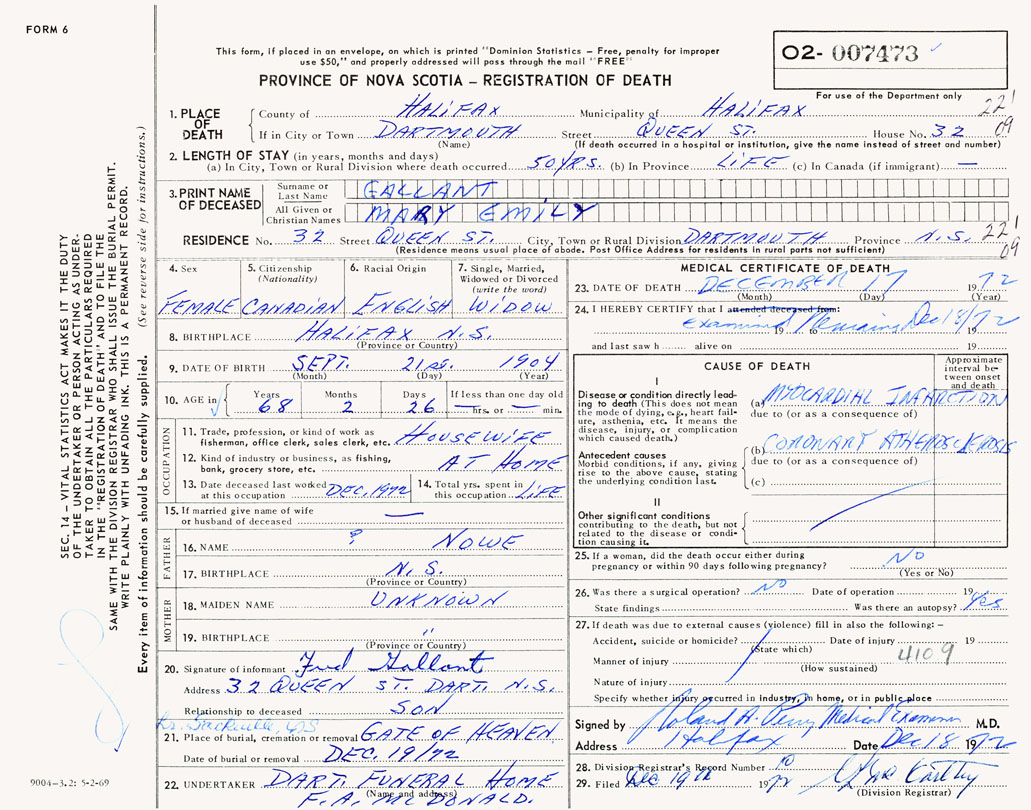 FORM 6
This form, if placed in an envelope, on which is printed "Dominion Statistics – Free, penalty for improper
use $50," and properly addressed will pass through the mail "FREE"
PROVINCE OF NOVA SCOTIA – REGISTRATION OF DEATH
O2- 007473
For use of the Department only
221
09
1. PLACE OF DEATH County of HALIFAX Municipality of HALIFAX
If in City or Town DARTMOUTH Street QUEEN ST. House No. 32
(Name) (If death occurred in a hospital or institution, give the name instead of street and number)
2. LENGTH OF STAY (in years, months and days)
(a) In City, Town or Rural Division where death occurred 50 YRS. (b) In Province LIFE (c) In Canada (if immigrant) —
3. PRINT NAME OF DECEASED
Surname or Last Name GALLANT
All Given or Christian Names MARY EMILY
RESIDENCE No. 32 Street QUEEN ST. City, Town or Rural Division DARTMOUTH Province N.S. 221
09
(Residence means usual place of abode. Post Office Address for residents in rural parts not sufficient)
4. Sex
FEMALE
5. Citizenship (Nationality)
CANADIAN
6. Racial Origin
ENGLISH
7. Single, Married, Widowed or Divorced (write the word)
WIDOW
8. BIRTHPLACE HALIFAX N.S.
(Province or Country)
9. DATE OF BIRTH SEPT. 21 1904
(Month) (Day) (Year)
10. AGE in Years 68 Months 2 Days 26 If less than one day old — hrs. or — min.
OCCUPATION
11. Trade, profession, or kind of work as
fisherman, office clerk, sales clerk, etc. HOUSEWIFE
12. Kind of industry or business, as fishing,
bank, grocery store, etc. AT HOME
13. Date deceased last worked at this occupation DEC. 1972
14. Total yrs. spent in this occupation LIFE
15. If married give name of wife
or husband of deceased —
FATHER
16. NAME ? NOWE
17. BIRTHPLACE N.S.
(Province or Country)
MOTHER
18. MAIDEN NAME UNKNOWN
19. BIRTHPLACE "
(Province or Country)
20. Signature of informant Fred Gallant
Address 32 QUEEN ST. DART. N.S.
Relationship to deceased SON
21. Place of burial, cremation or removal GATE OF HEAVEN
Date of burial or removal DEC. 19/72
22. UNDERTAKER DART. FUNERAL HOME
(Name and address)
F. A. McDONALD.
MEDICAL CERTIFICATE OF DEATH
23. DATE OF DEATH DECEMBER 17 1972
(Month) (Day) (Year)
24. I HEREBY CERTIFY that I attended deceased from:
Examined Remains Dec 18/72
19 to 19
and last saw h alive on 19
CAUSE OF DEATH
Approximate interval between onset and death
I
Disease or condition directly leading
to death (This does not mean
the mode of dying, e.g., heart failure,
asthenia, etc. It means the
disease, injury, or complication
which caused death.)
(a) MYOCARDIAL INFARCTION
due to (or as a consequence of)
Antecedent causes
Morbid conditions, if any, giving
rise to the above cause, stating
the underlying condition last.
(b) CORONARY
due to (or as a consequence of)
(c)
II
Other significant conditions
contributing to the death, but not
related to the disease or condition
causing it.
25. If a woman, did the death occur either during
pregnancy or within 90 days following pregnancy? NO
(Yes or No)
26. Was there a surgical operation? NO Date of operation 19
State findings Was there an autopsy? Yes
27. If death was due to external causes (violence) fill in also the following: –
Accident, suicide or homicide? Date of injury 19
(State which)
4109
Manner of injury
(How sustained)
Nature of injury
Specify whether injury occurred in industry, in home, or in public place
Signed by Roland A. Perry Medical Examiner M.D.
Address Halifax Date Dec 18 1972
28. Division Registrar's Record Number 10
29. Filed Dec 19th 1972
(Division Registrar)
SEC. 14 – VITAL STATISTICS ACT MAKES IT THE DUTY
OF THE UNDERTAKER OR PERSON ACTING AS UNDER-
TAKER TO OBTAIN ALL THE PARTICULARS REQUIRED
IN THE "REGISTRATION OF DEATH" AND TO FILE THE
SAME WITH THE DIVISION REGISTRAR WHO SHALL ISSUE THE BURIAL PERMIT.
WRITE PLAINLY WITH UNFADING INK. THIS IS A PERMANENT RECORD.
Every item of information should be carefully supplied. (See reverse side for instructions.)
9004-3.2: 5-2-69